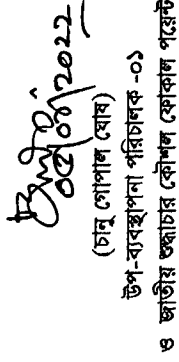 ০৫/০৬/2022
(চানু গোপাল ঘোষ)
উপ-ব্যবস্থাপনা পরিচালক -০১
ও জাতীয় শুদ্ধাচার কৌশল ফোকাল পয়েন্ট